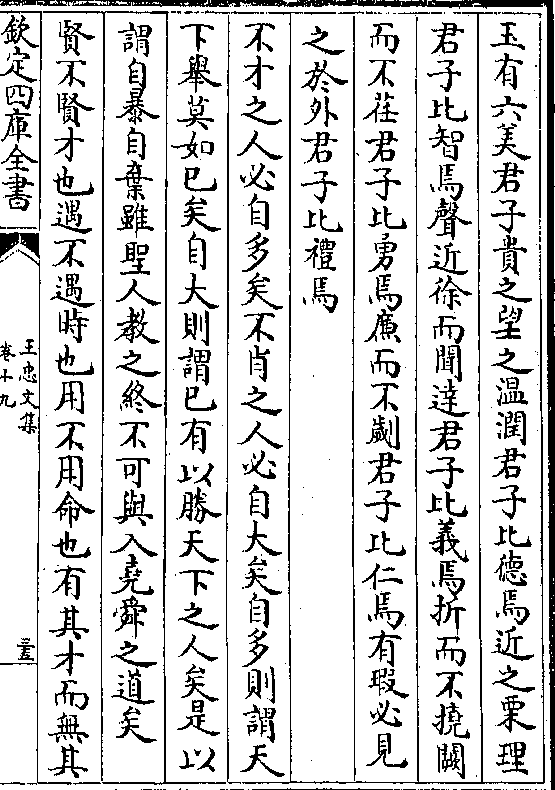 玉有六美君子貴之望之温潤君子比德焉近之栗理
君子比智焉聲近徐而聞逹君子比義焉折而不撓闕
而不荏君子比勇焉廉而不劌君子比仁焉有瑕必見
之於外君子比禮焉
不才之人必自多矣不肖之人必自大矣自多則謂天
下舉莫如已矣自大則謂已有以勝天下之人矣是以
謂自暴自棄雖聖人教之終不可與入堯舜之道矣
賢不賢才也遇不遇時也用不用命也有其才而無其
欽定四庫全書
王忠文集
卷十九
三五